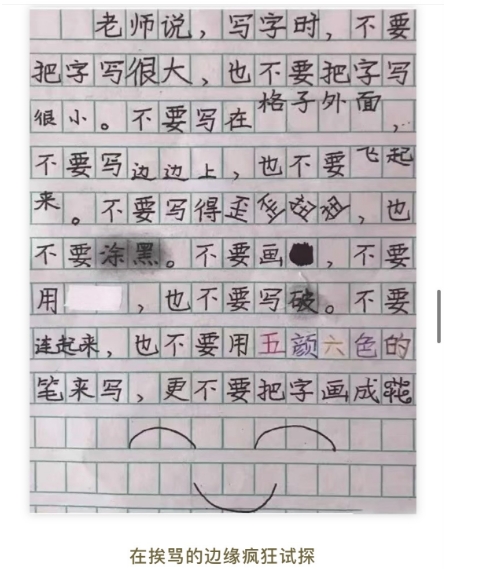 老师说，写字时，不要
把字写很大，也不要把字写
很小。不要写在格子外面，
不要写边边上，也不要飞起
来。不要写得歪歪扭扭，也
不要涂黑。不要画，不要
用，也不要写破。不要
连起来，也不要用五颜六色的
笔来写，更不要把字画成花
在挨骂的边缘疯狂试探